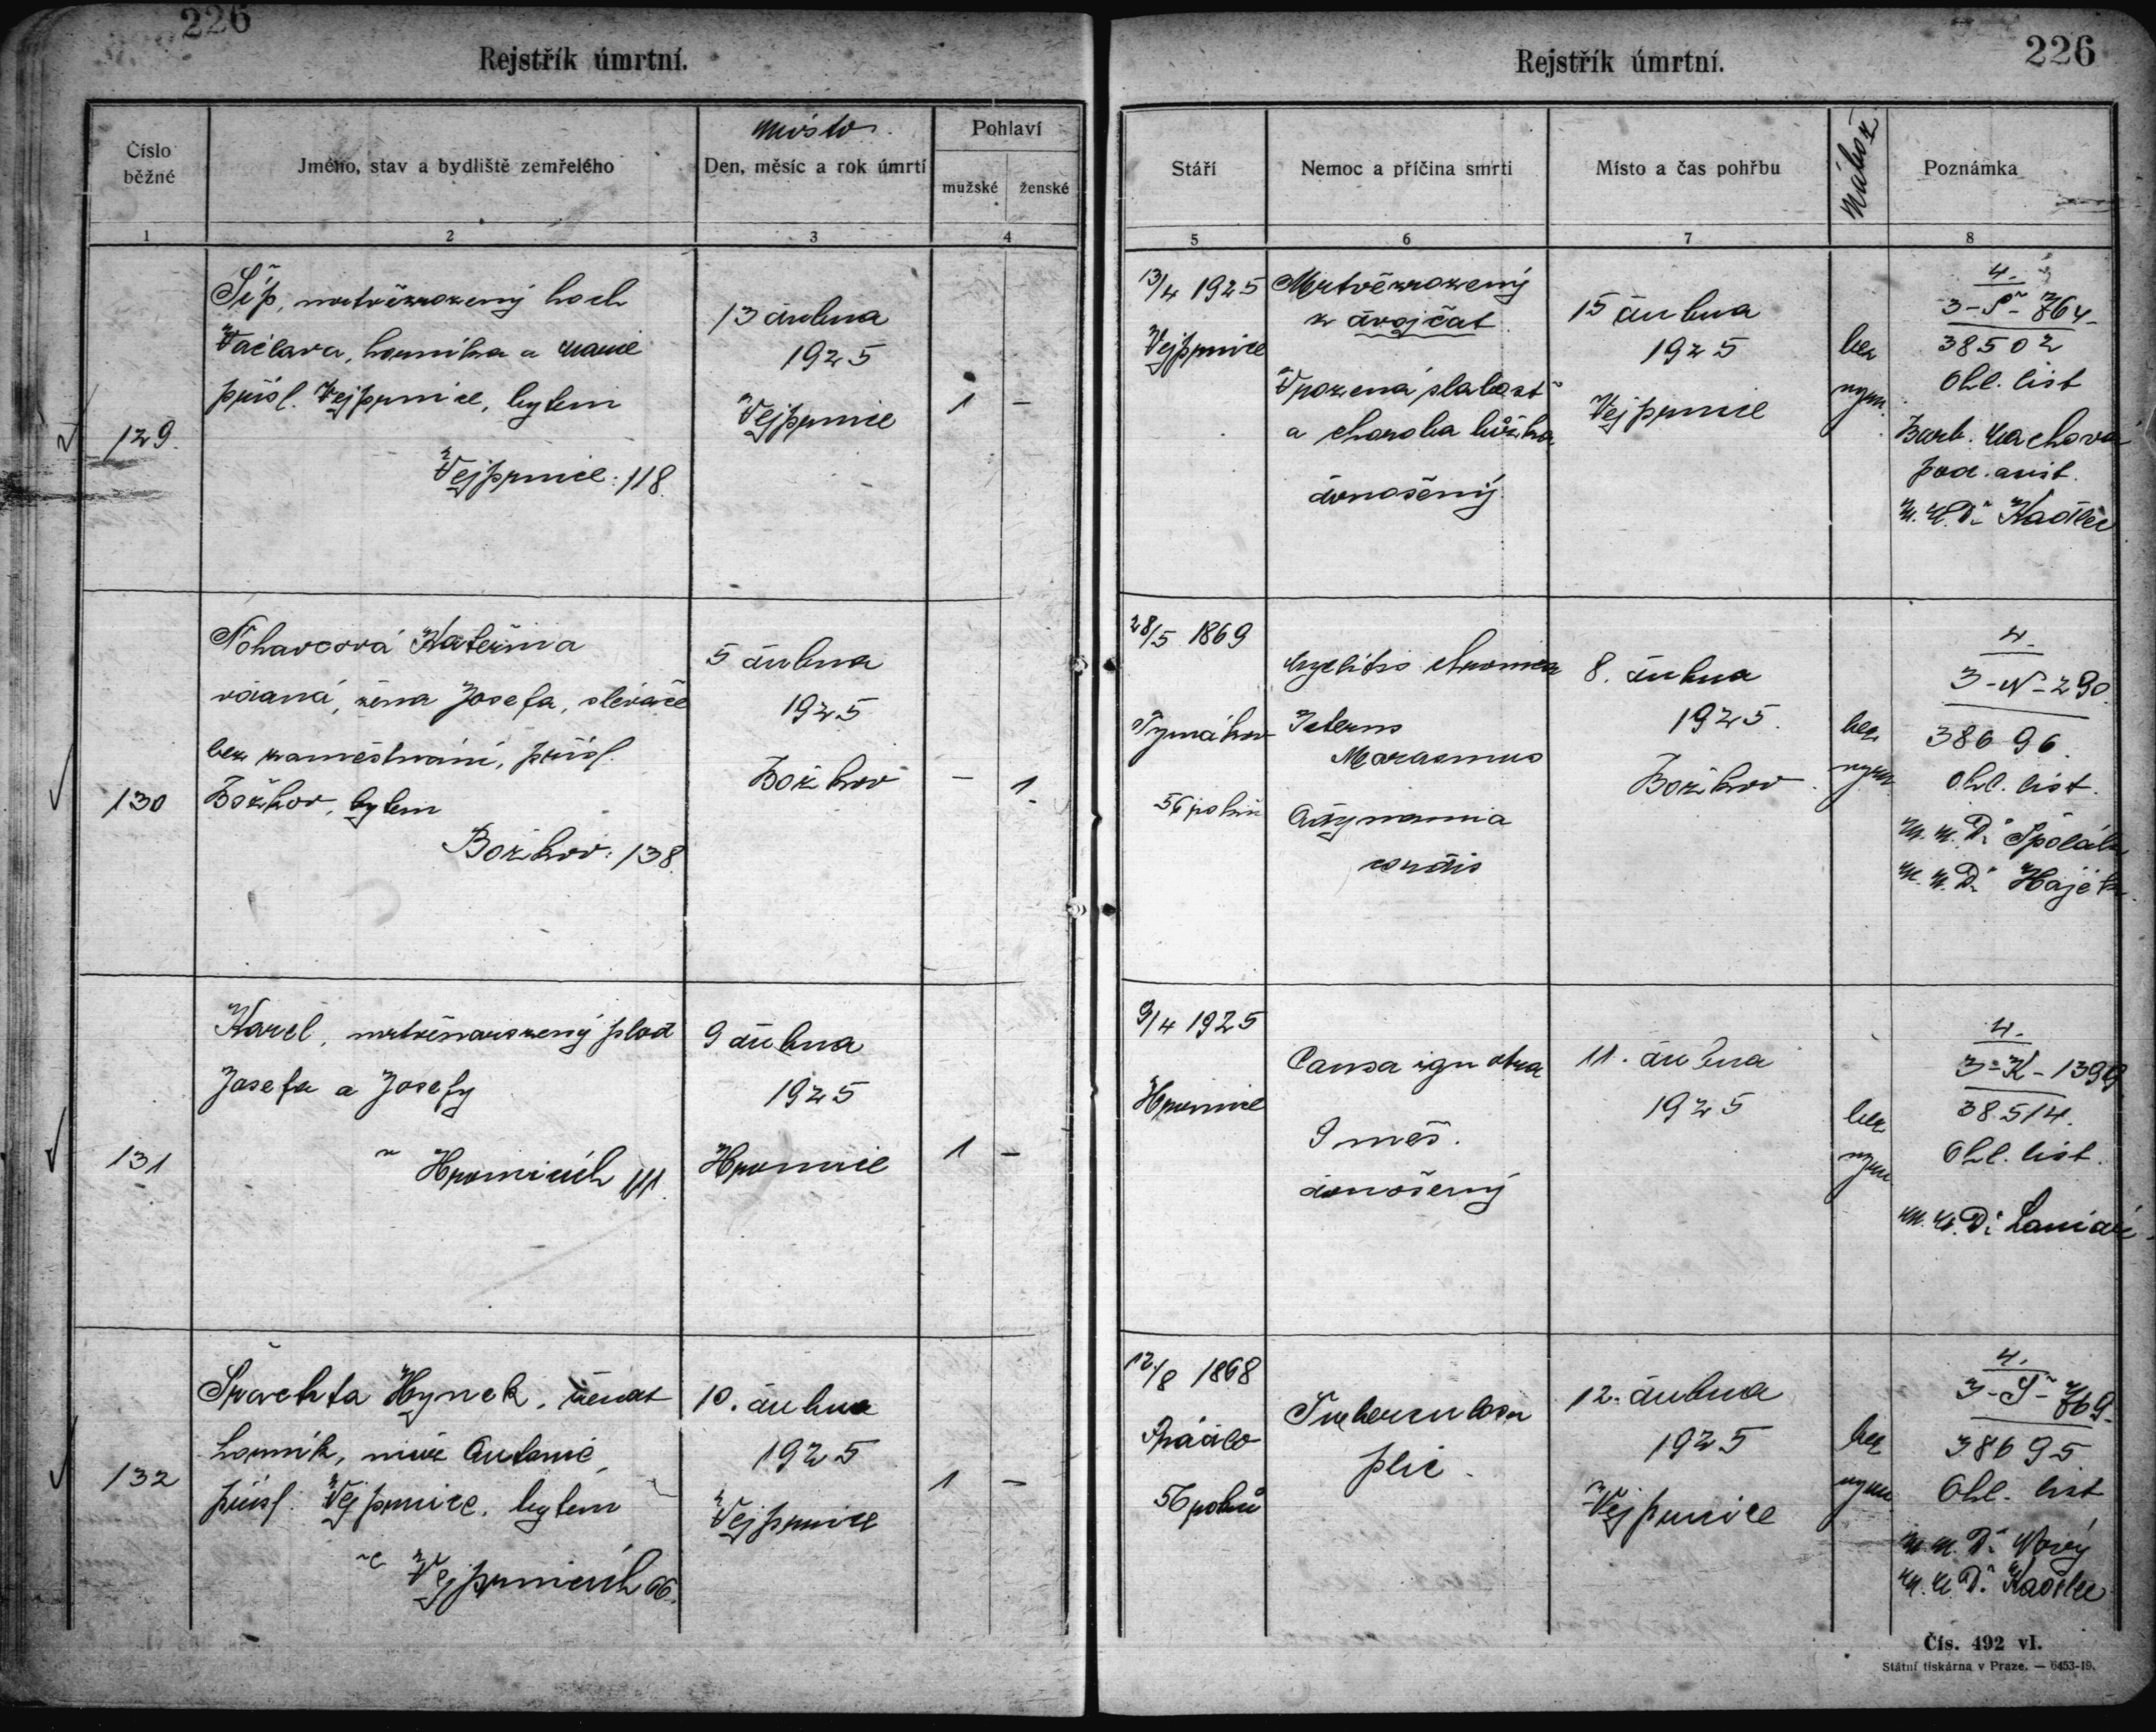 226
Rejstřík úmrtní.
Číslo běžné
Jméno, stav a bydliště zemřelého
Místo
Den, měsíc a rok úmrtí
Pohlaví
mužské
ženské
1
2
3
4
129.
Šíp, mrtvězrozený hoch
Václava, horníka a Marie
přísl. Vejprnice, bytem
Vejprnice: 118.
13 dubna
1925
Vejprnice
1
–
130
Nohavcová Kateřina
vdaná, žena Josefa, slévače
bez zaměstnání, přísl.
Božkov, bytem
Božkov: 138.
5 dubna
1925
Božkov
–
1.
131
Karel, mrtvěnarozený plod
Josefa a Josefy
v Hromicích 111.
9 dubna
1925
Hromice
1
–
132
Švachta Hynek, ženat
horník, muž Antonie,
přísl. Vejprnice, bytem
ve Vejprnicích 66.
10. dubna
1925
Vejprnice
1
–
Rejstřík úmrtní.
226
Stáří
Nemoc a příčina smrti
Místo a čas pohřbu
Nábož.
Poznámka
5
6
7
8
13/4 1925
Vejprnice
Mrtvězrozený
z dvojčat
Vrozená slabost
a choroba lůžka
donošený.
15 dubna
1925
Vejprnice
bez
vyzn.
4.
3-Š-764
38502
Ohl. list
Barb. Machová
pod. asist.
M.U.Dr. Kadlec
28/5 1869
Tymákov
56 roků
Myelitis chronica
Icterus
Marasmus
Adynamia
cordis
8. dubna
1925.
Božkov
bez
vyzn.
4.
3-N-290.
38696.
Ohl. list.
M.U.Dr.
M.U.Dr. Hájek
9/4 1925
Hromice
Causa ignota
9 měs.
donošený
11. dubna
1925
bez
vyzn
4.
3-K-1399
38.514.
Ohl. list.
M.U.Dr.
12./8 1868
56 roků
Tuberculosa
plic.
12. dubna
1925
Vejprnice
bez
vyzn
4.
3-Š-769.
38695
Ohl. list
M.U.Dr. Nový
M.U.Dr. Kadlec
Čís. 492 vI.
Státní tiskárna v Praze. — 6453-19.